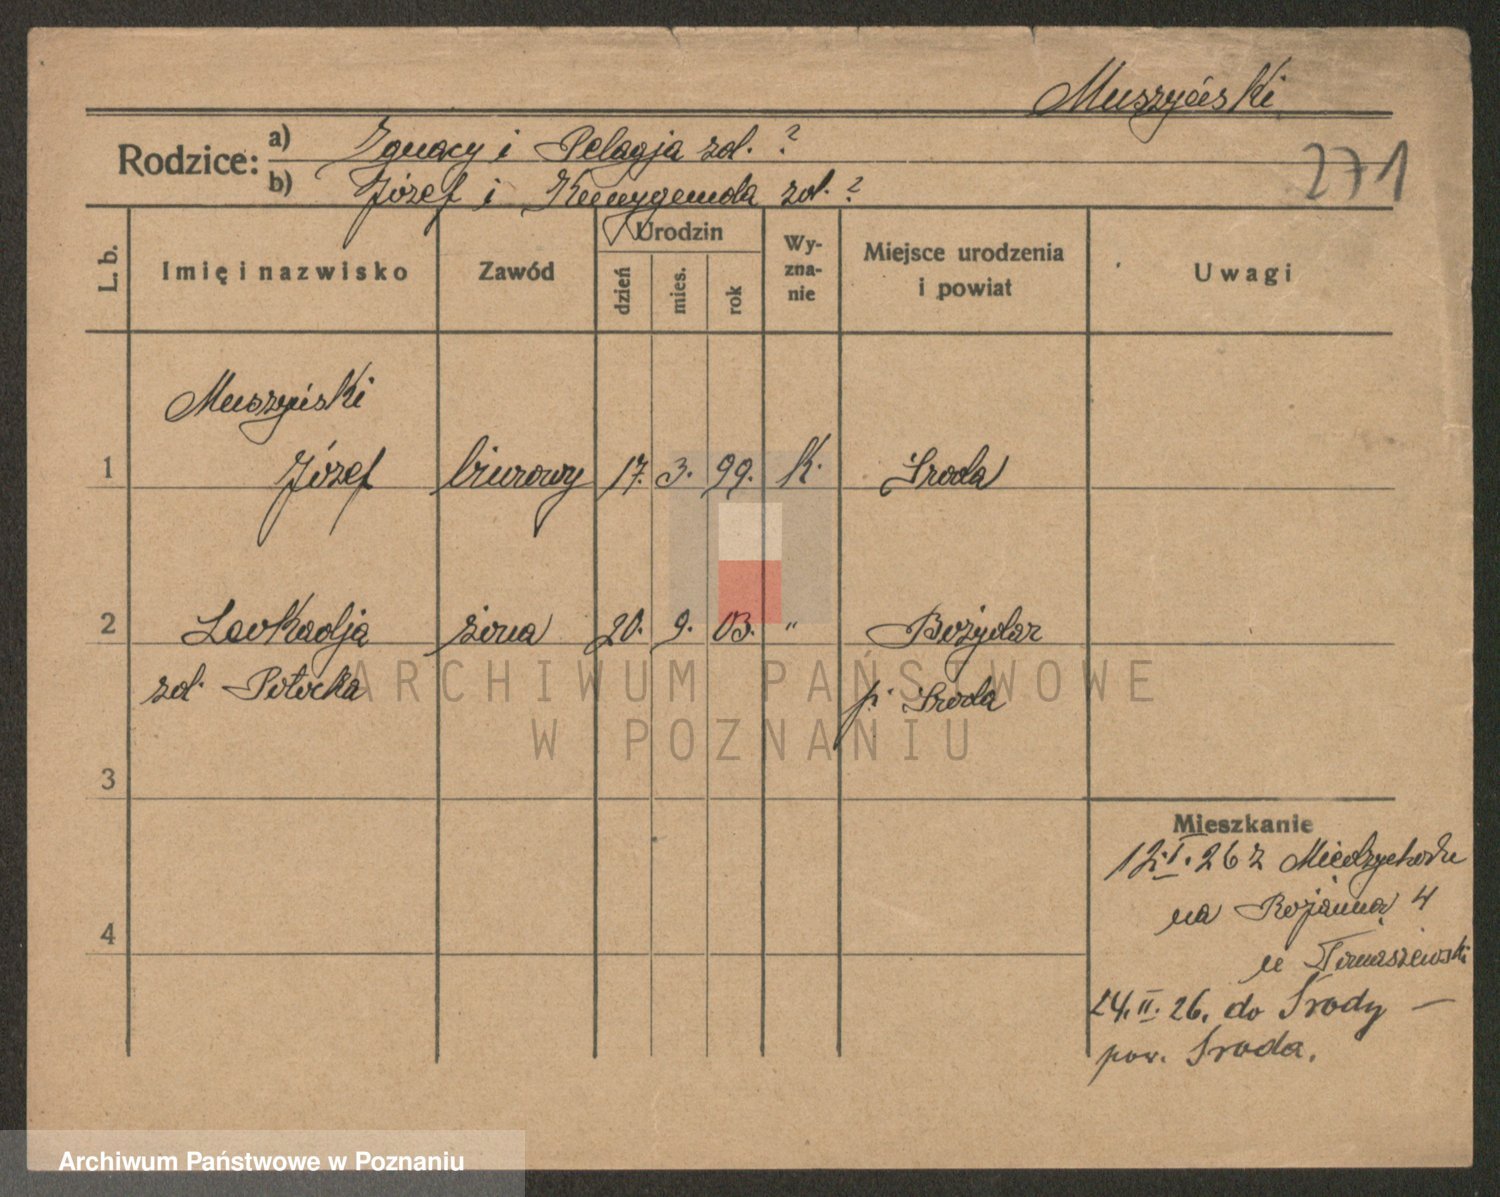 Muszyński
271
Rodzice:
a) Ignacy i Pelagja zd. ?
b) Józef i Kunygunda zd. ?
L. b.
Imię i nazwisko
Zawód
Urodzin
dzień
mies.
rok
Wy-
zna-
nie
Miejsce urodzenia
i powiat
Uwagi
Muszyński
1 Józef biurowy 17. 3. 99. K. Sroda
2 Leokadja żona 20. 9. 03. " Bożydar
zd. Potocka p. Sroda
3
4
Mieszkanie
12.I.26 z Międzychodu
na 4
u Tomaszewski
24.II.26. do Srody —
pow. Sroda.
ARCHIWUM PAŃSTWOWE
W POZNANIU
Archiwum Państwowe w Poznaniu